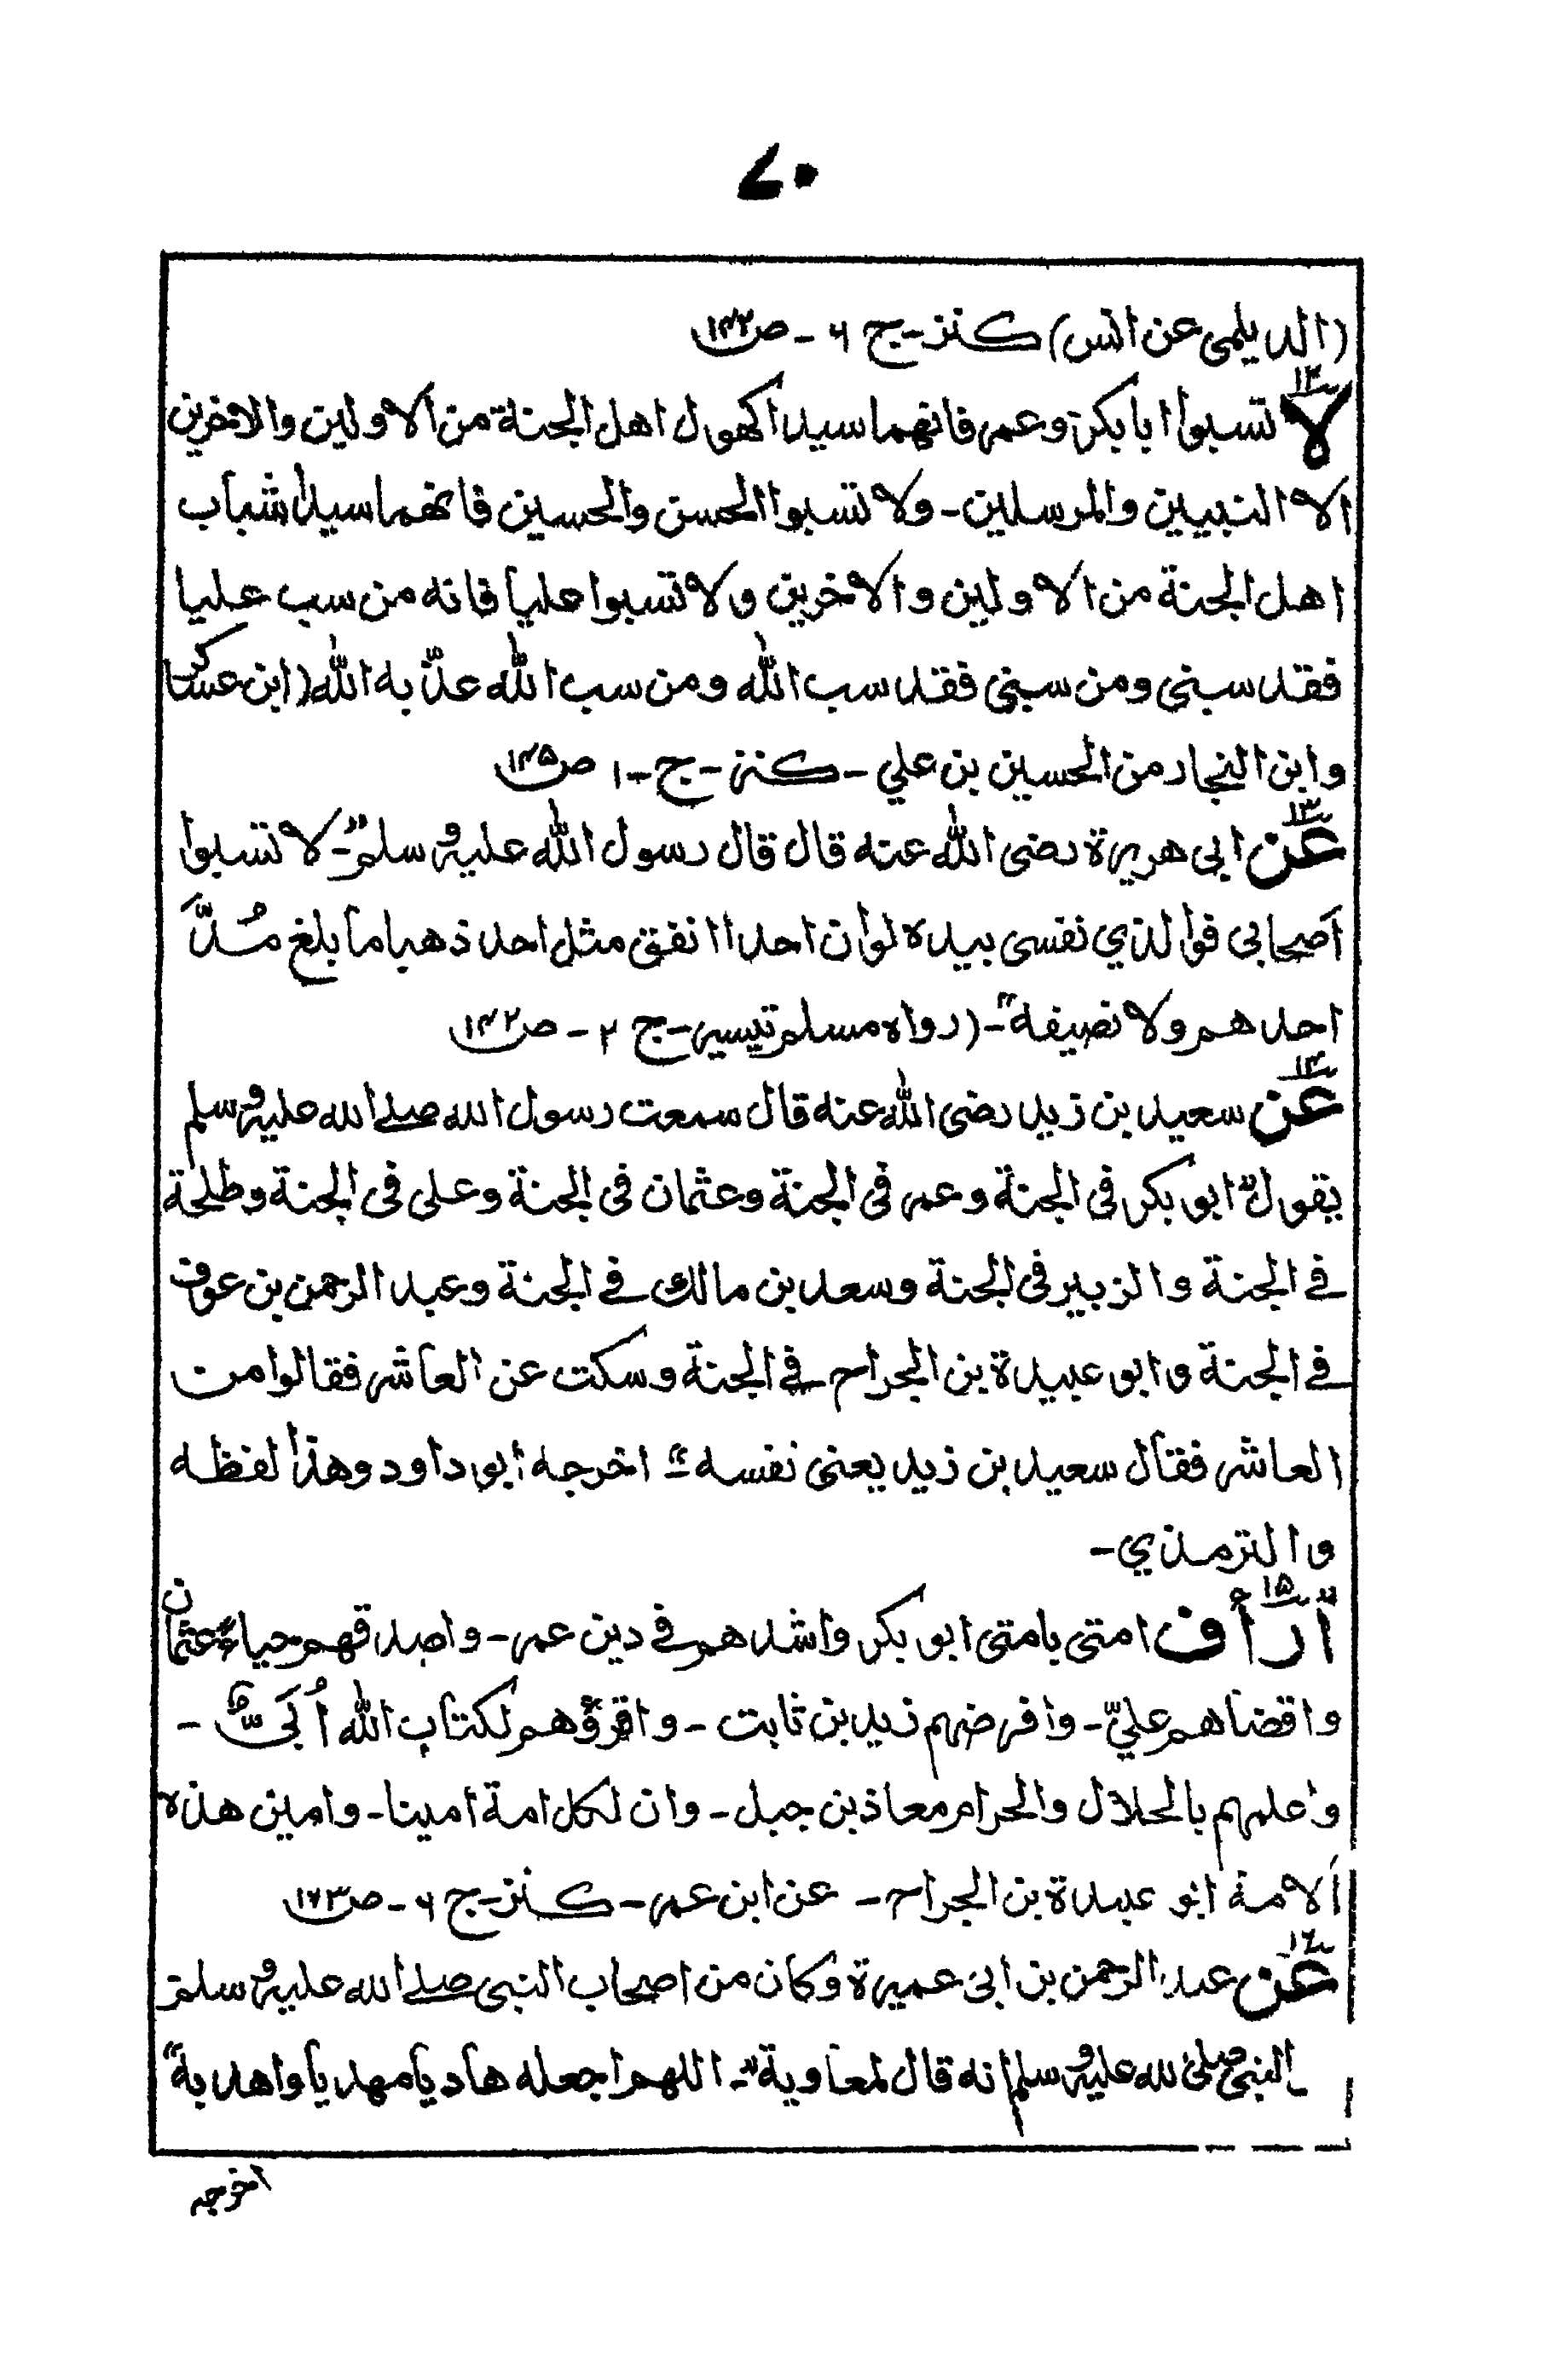 ٧٠
(الديلمى عن انس) كنز-ج ٦ - ص١٤٢
١٢
لا تسبوا ابا بكر وعمر فانهما سيدا كهول اهل الجنة من الاولين والاخرين
الا النبيين والمرسلين - ولا تسبوا الحسن والحسين فانهما سيدا شباب
اهل الجنة من الاولين والاخرين ولا تسبوا عليا فانه من سب عليا
فقد سبنى ومن سبنى فقد سب الله ومن سب الله عذّبه الله (ابن عساكر
وابن النجار من الحسين بن علي - كنز - ج - ١ ص١٤٥
١٣
عن ابى هريرة رضى الله عنه قال قال رسول الله عليه وسلم "- لا تسبوا
اصحابى فوالذي نفسى بيده لو ان احدا انفق مثل احد ذهبا ما بلغ مُدَّ
احدهم ولا نصيفه" - (رواه مسلم تيسير - ج ٢ - ص١٤٢
١٤
عن سعيد بن زيد رضى الله عنه قال سمعت رسول الله صلے الله عليه وسلم
يقول" ابو بكر فى الجنة وعمر فى الجنة وعثمان فى الجنة وعلى فى الجنة وطلحة
فے الجنة والزبير فى الجنة وسعد بن مالك فے الجنة وعبد الرحمن بن عوف
فے الجنة وابو عبيدة بن الجراح فے الجنة وسكت عن العاشر فقالوا من
العاشر فقال سعيد بن زيد يعنى نفسه"- اخرجه ابو داود وهذا لفظه
والترمذي -
١٥
"أرأف امتى بامتى ابو بكر واشدهم فے دين عمر - واصدقهم حياءً عثمان
واقضاهم عليّ - وافرضهم زيد بن ثابت - واقرؤهم لكتاب الله اُبَىٌّ -
واعلمهم بالحلال والحرام معاذ بن جبل - وان لكل امة امينا - وامين هذه
الامة ابو عبيدة بن الجراح - عن ابن عمر - كنز - ج ٦ - ص١٧٣
١٦
عن عبد الرحمن بن ابى عميرة وكان من اصحاب النبى صلے الله عليه وسلم
النبى صلى لله عليه وسلم انه قال لمعاوية "- اللهم اجعله هاديا مهديا واهد به"
اخرجه